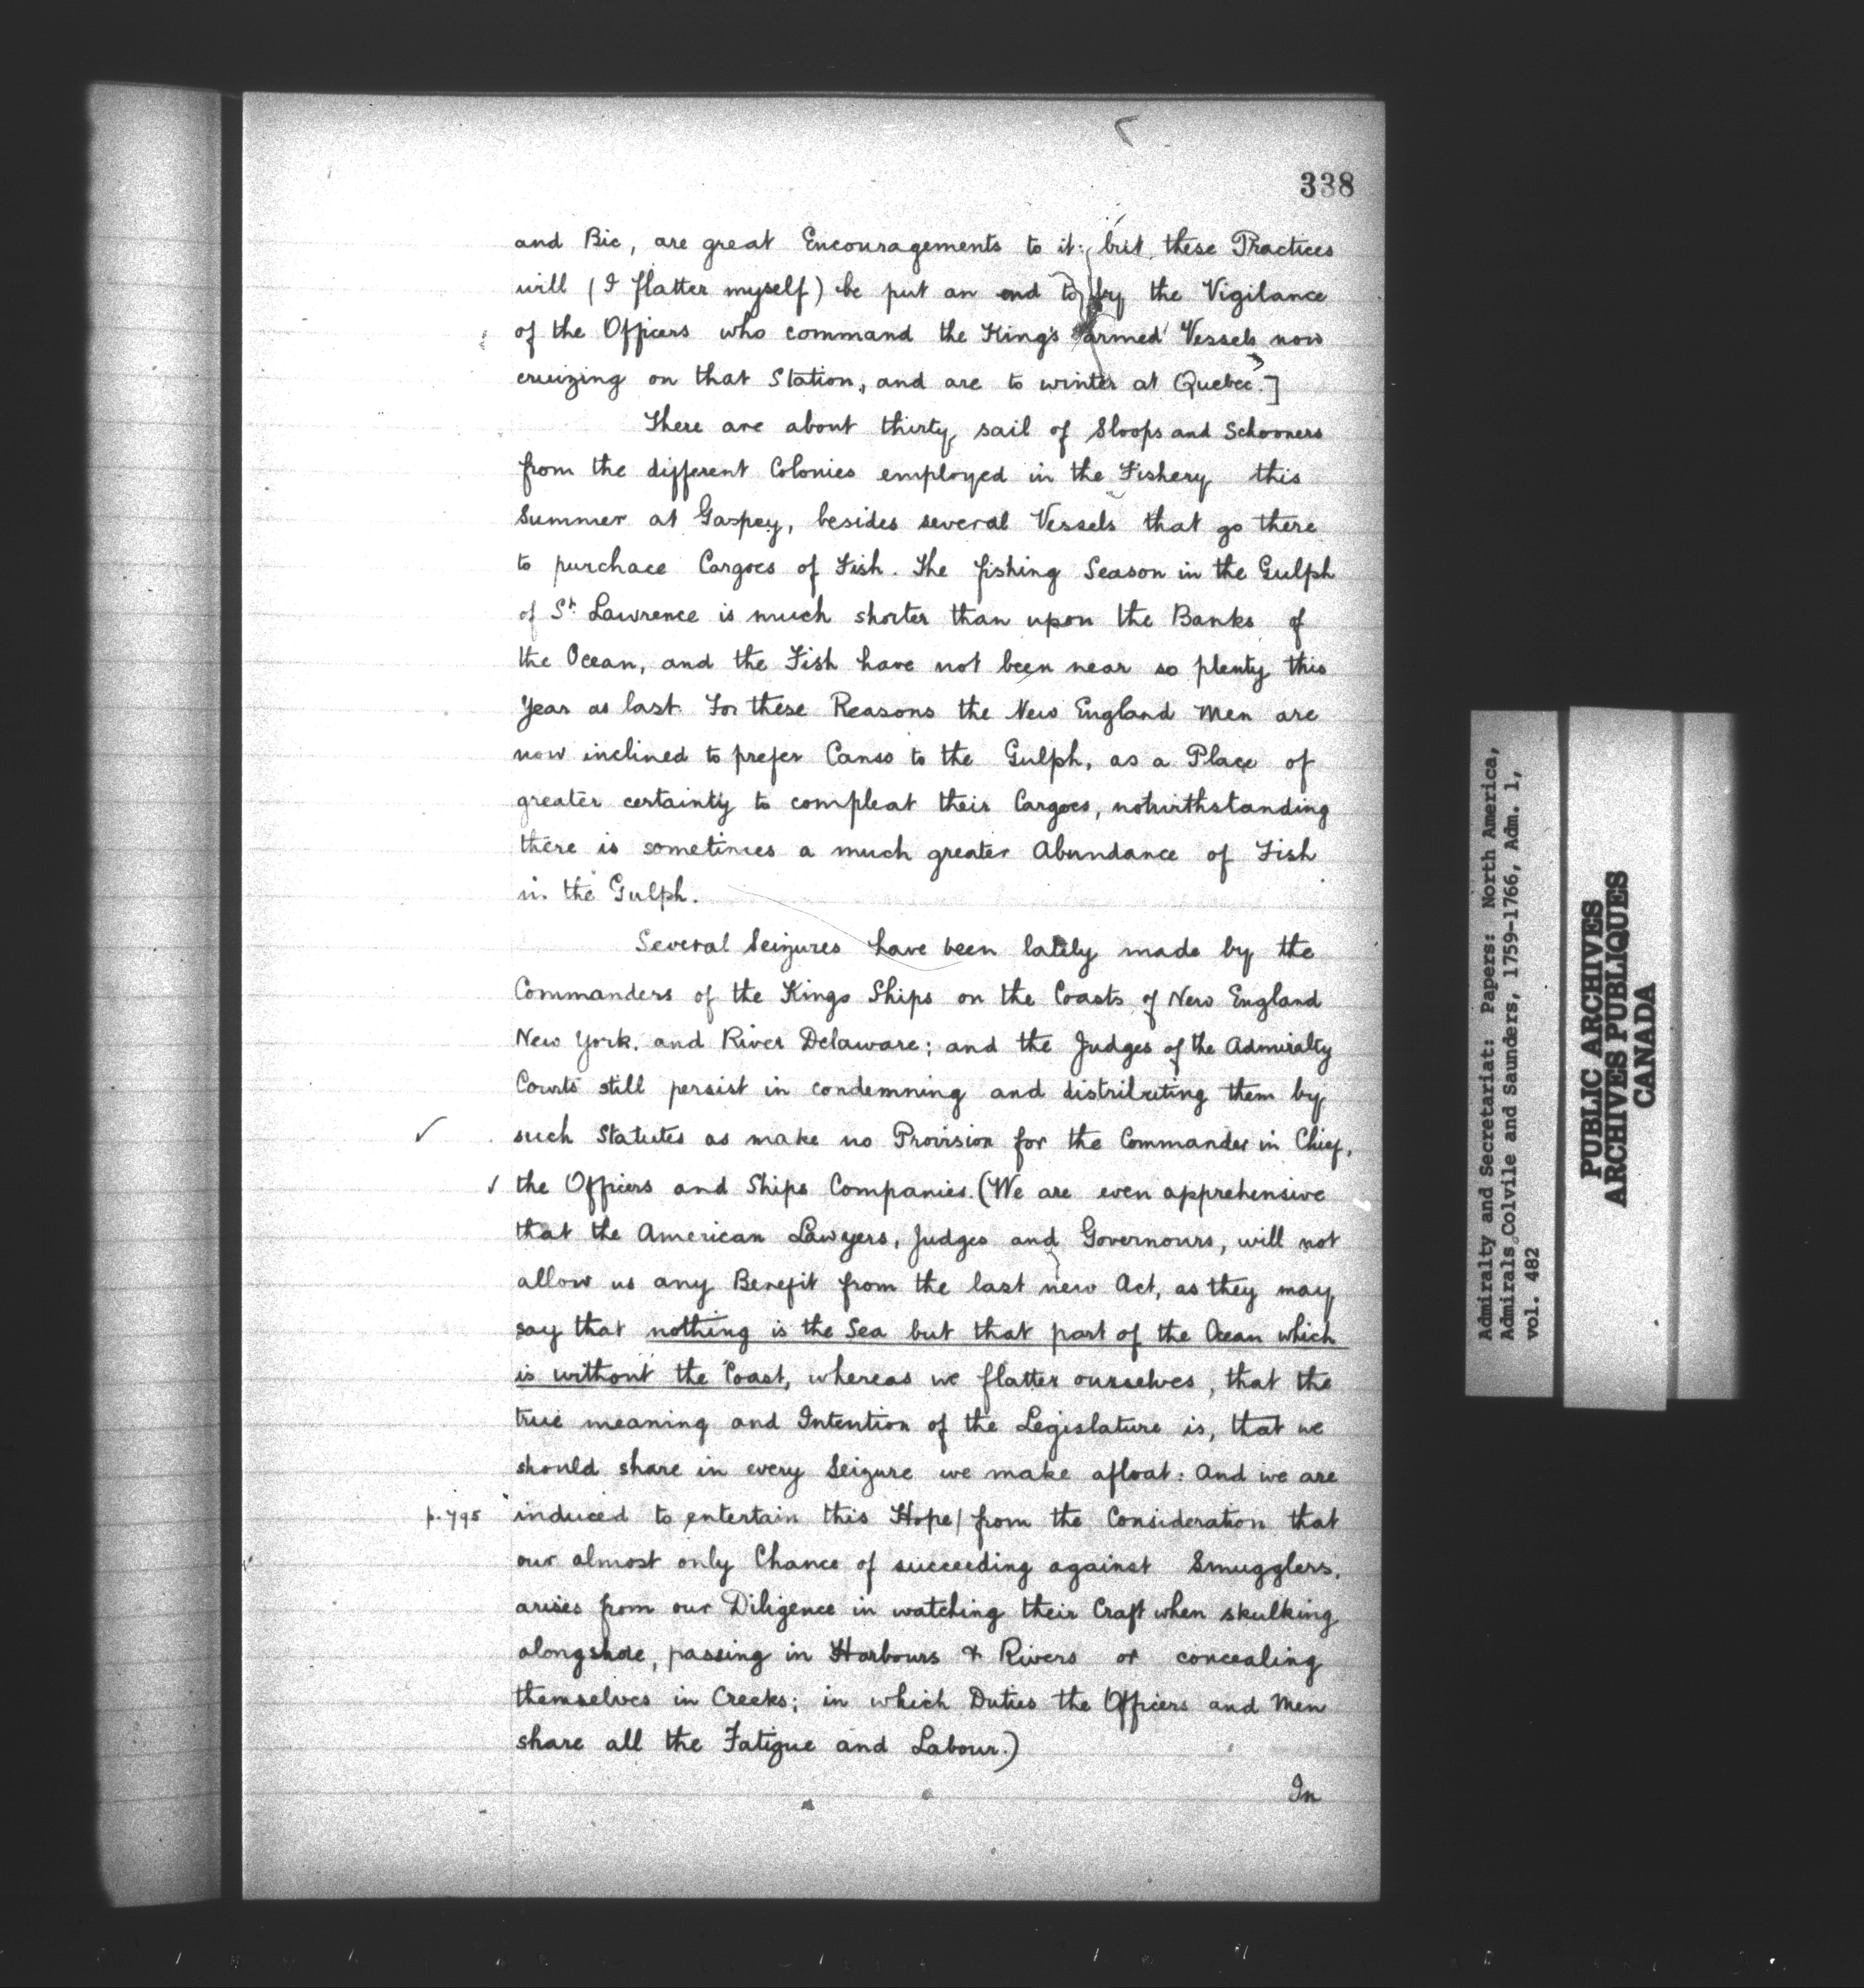 338
and Bic, are great Encouragements to it; but these Practices
will (I flatter myself) be put an end to by the Vigilance
of the Officers who command the King's armed Vessels now
cruizing on that Station, and are to winter at Quebec.]
There are about thirty sail of Sloops and Schooners
from the different Colonies employed in the Fishery this
Summer at Gaspey, besides several Vessels that go there
to purchace Cargoes of Fish. The fishing Season in the Gulph
of St. Lawrence is much shorter than upon the Banks of
the Ocean, and the Fish have not been near so plenty this
Year as last. For these Reasons the New England Men are
now inclined to prefer Canso to the Gulph, as a Place of
greater certainty to compleat their Cargoes, notwithstanding
there is sometimes a much greater Abundance of Fish
in the Gulph.
Several Seizures have been lately made by the
Commanders of the Kings Ships on the Coasts of New England
New York, and River Delaware; and the Judges of the Admiralty
Courts still persist in condemning and distributing them by
such Statutes as make no Provision for the Commander in Chief,
the Officers and Ships Companies. (We are even apprehensive
that the American Lawyers, Judges and Governours, will not
allow us any Benefit from the last new Act, as they may
say that nothing is the Sea but that part of the Ocean which
is without the Coast, whereas we flatter ourselves, that the
true meaning and Intention of the Legislature is, that we
should share in every Seizure we make afloat: And we are
p. 795 induced to entertain this Hope/ from the Consideration that
our almost only Chance of succeeding against Smugglers,
arises from our Diligence in watching their Craft when skulking
alongshore, passing in Harbours & Rivers or concealing
themselves in Creeks; in which Duties the Officers and Men
share all the Fatigue and Labour.)
In
Admiralty and Secretariat: Papers: North America,
Admirals Colvile and Saunders, 1759-1766, Adm. 1,
vol. 482
PUBLIC ARCHIVES
ARCHIVES PUBLIQUES
CANADA